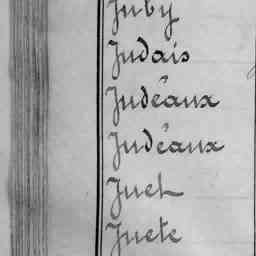 Juby
Judais
Judéaux
Judéaux
Juel
Juete